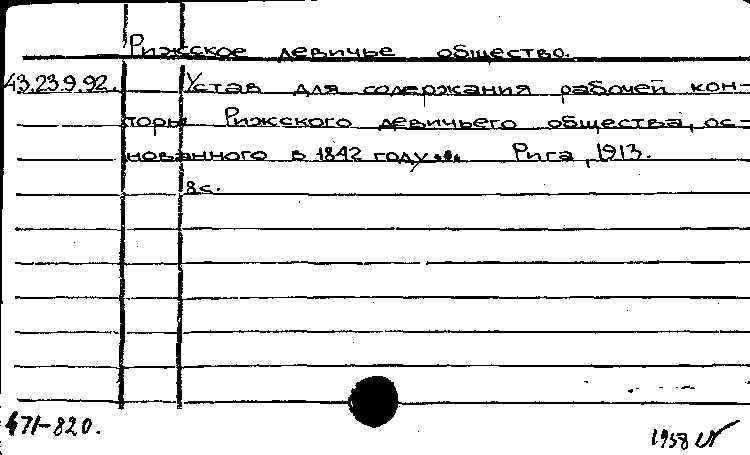 Рижское девичье общество.
43.23.9.92. Устав для содержания рабочей кон-
торы Рижского девичьего общества, ос-
нованного в 1842 году... Рига, 1913.
8с.
471-820.
1958